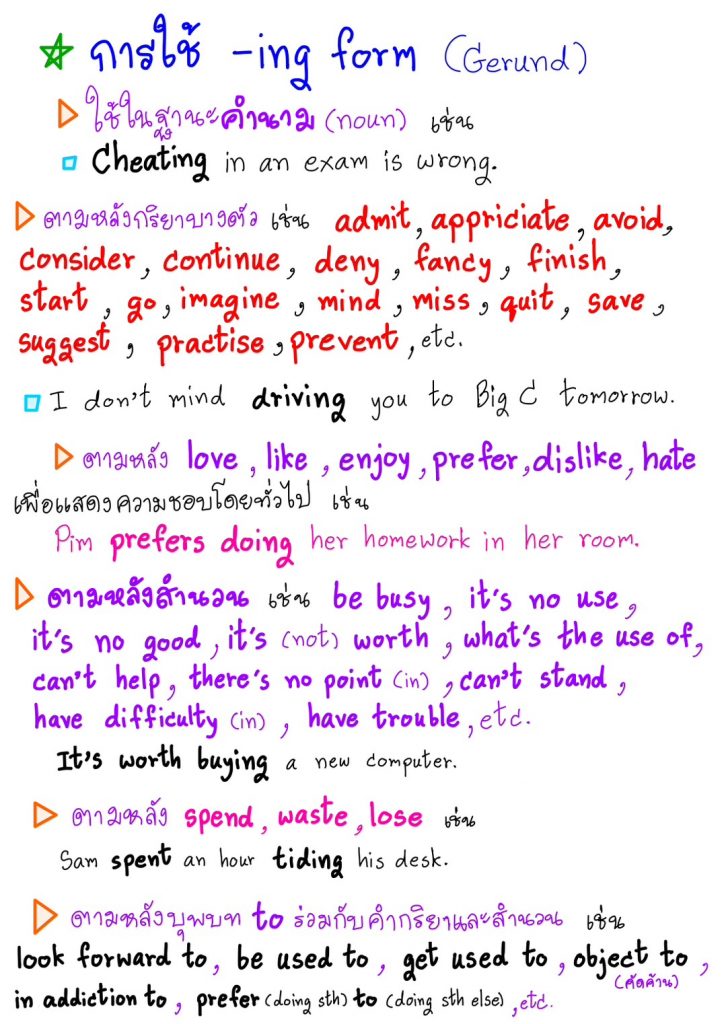 การใช้ -ing form (Gerund)
ใช้ในฐานะคำนาม (noun) เช่น
Cheating in an exam is wrong.
ตามหลังกริยาบางตัว เช่น admit, appriciate, avoid,
consider, continue, deny, fancy, finish,
start, go, imagine, mind, miss, quit, save,
suggest, practise, prevent, etc.
I don't mind driving you to Big C tomorrow.
ตามหลัง love, like, enjoy, prefer, dislike, hate
เพื่อแสดงความชอบโดยทั่วไป เช่น
Pim prefers doing her homework in her room.
ตามหลังสำนวน เช่น be busy, it's no use,
it's no good, it's (not) worth, what's the use of,
can't help, there's no point (in), can't stand,
have difficulty (in), have trouble, etc.
It's worth buying a new computer.
ตามหลัง spend, waste, lose เช่น
Sam spent an hour tiding his desk.
ตามหลังบุพบท to ร่วมกับคำกริยาและสำนวน เช่น
look forward to, be used to, get used to, object to,
(คัดค้าน)
in addiction to, prefer (doing sth) to (doing sth else), etc.